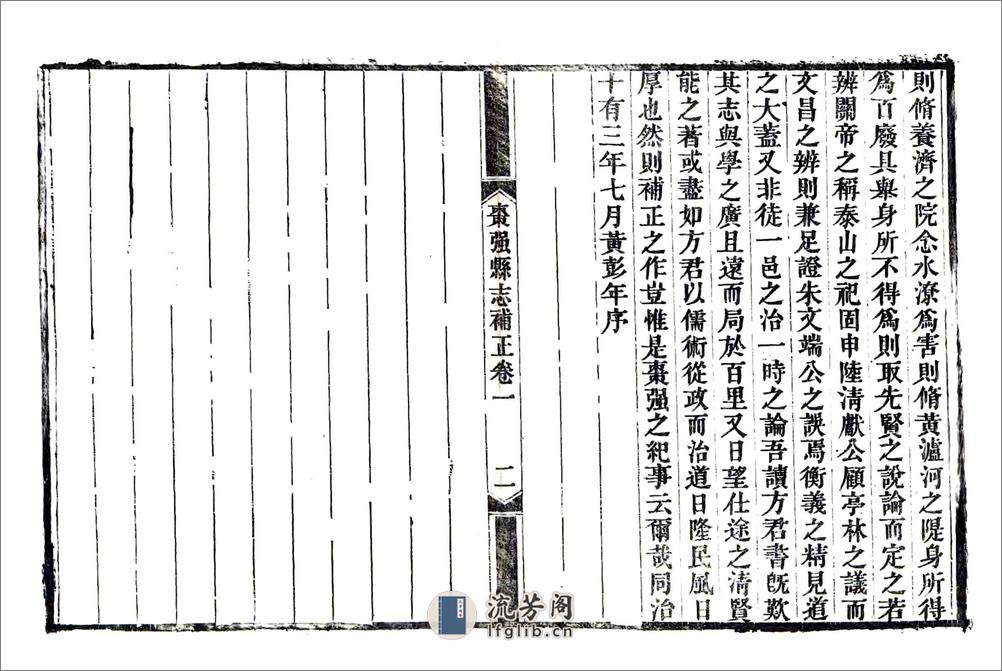 則脩養濟之院念水潦爲害則脩黃瀘河之隄身所得
爲百廢具舉身所不得爲則取先賢之說論而定之若
辨關帝之稱泰山之祀固申陸清獻公顧亭林之議而
文昌之辨則兼足證朱文端公之誤焉衡義之精見道
之大蓋又非徒一邑之治一時之論吾讀方君書旣歎
其志與學之廣且遠而局於百里又日望仕途之清賢
能之著或盡如方君以儒術從政而治道日隆民風日
厚也然則補正之作豈惟是棗强之紀事云爾哉同治
十有三年七月黃彭年序
棗强縣志補正卷一
二
流芳阁
lfglib.cn